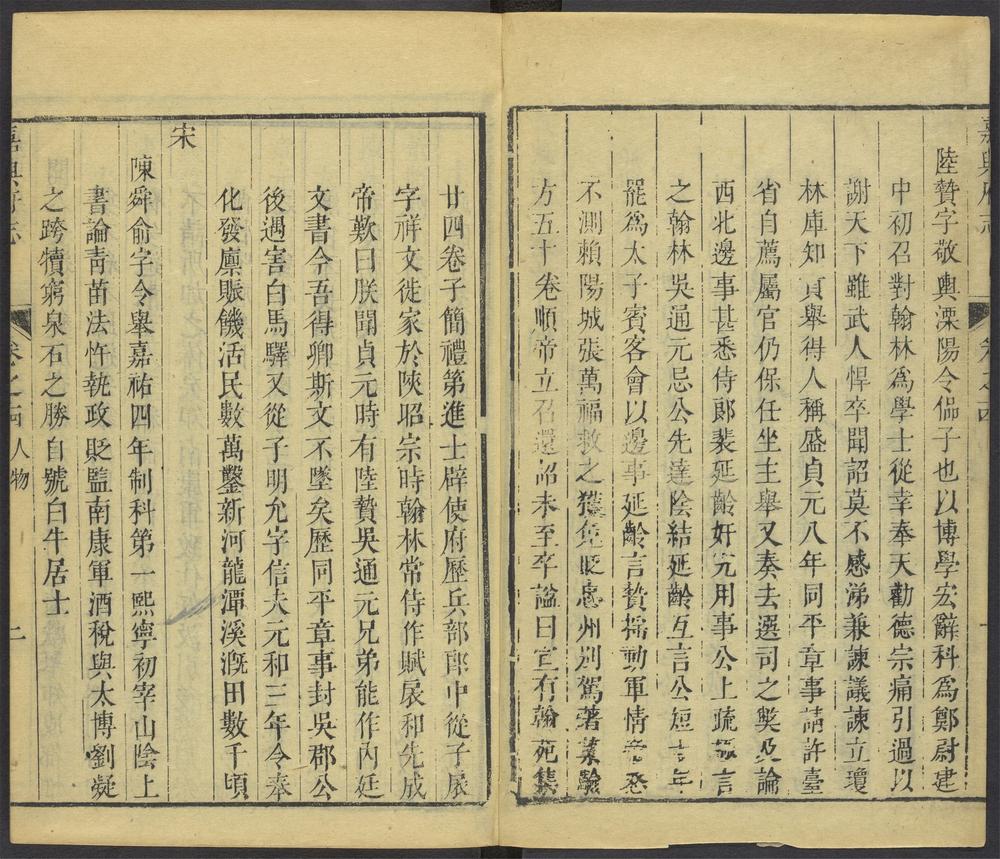 嘉興府志
卷之四
陸贄字敬輿溧陽令偘子也以博學宏辭科爲鄭尉建
中初召對翰林爲學士從幸奉天勸德宗痛引過以
謝天下雖武人悍卒聞詔莫不感涕兼諫議諫立瓊
林庫知貢舉得人稱盛貞元八年同平章事請許臺
省自薦屬官仍保任坐主舉又奏去選司之獘及論
西北邊事甚悉侍郎裴延齡奸宄用事公上疏極言
之翰林吳通元忌公先達陰結延齡互言公短十年
罷爲太子賓客會以邊事延齡言贄搖動軍情帝怒
不測賴陽城張萬福救之獲免貶忠州別駕著集驗
方五十卷順帝立召還詔未至卒謚曰宣有翰苑集
廿四卷子簡禮第進士辟使府歷兵部郎中從子扆
字祥文徙家於陝昭宗時翰林常侍作賦扆和先成
帝歎曰朕聞貞元時有陸贄吳通元兄弟能作內廷
文書今吾得卿斯文不墜矣歷同平章事封吳郡公
後遇害白馬驛又從子明允字信夫元和三年令奉
化發廩賑饑活民數萬鑿新河龍潭溪溉田數千頃
宋
陳舜俞字令舉嘉祐四年制科第一熙寧初宰山陰上
書論靑苗法忤執政貶監南康軍酒稅與太博劉凝
之跨犢窮泉石之勝自號白牛居士
嘉興府志
卷之四人物
二